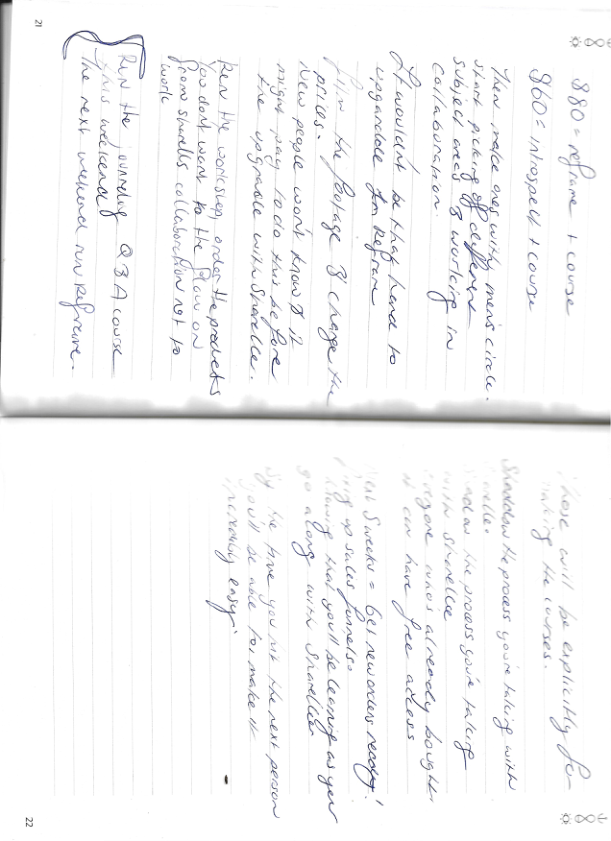 21
$80 = reframe + course
$60 = introspect + course
Then make ones with men's circle.
start picking off different
subject areas & working in
collaboration.
It wouldn't be that hard to
upgradable for Reframe
Film the footage & change the
prices.
New people won't know & it
might pay to do this before
the upgradable with Sharelle.
Run the workshop order the products
You dont want to the flow on
from sharells collaboration not to
work
Run the journaling Q & A course
this weekend
The next weekend run Reframe.
Those will be explicitly for
making the courses.
Shadow the process you're taking with
Sharelle.
Shadow the process you're taking
with Sharelle
everyone who's already bought
it can have free access
Next 5 weeks = Get new orders ready!
up sales funnels.
knowing that you'll be learning as you
go along with Sharelle
By the time you hit the next person
you'll be able to make it
incredibly easy.
22